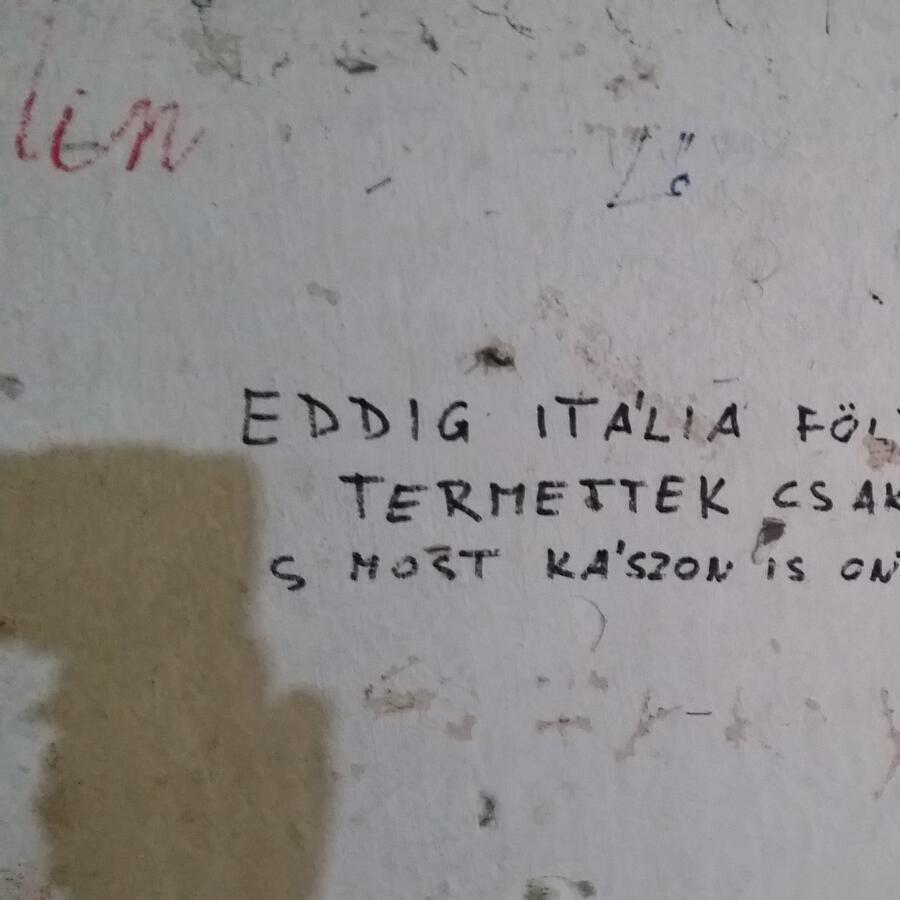 lin
EDDIG ITÁLIA FÖL
TERMETTEK CSAK
S MOST KÁSZON IS ON